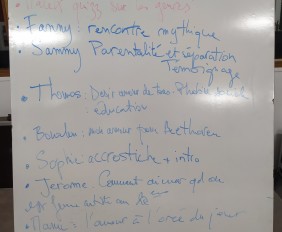 quizz sur les genres
• Fanny : rencontre mythique
• Sammy Parentalité et séparation
Témoignage
• Thomas : Desir amour de
: éducation
• : mon amour pour Beethoven
• Sophie accrostiche + intro
• Jerome : Comment aimer qd on
: l'amour à l'orée du jour